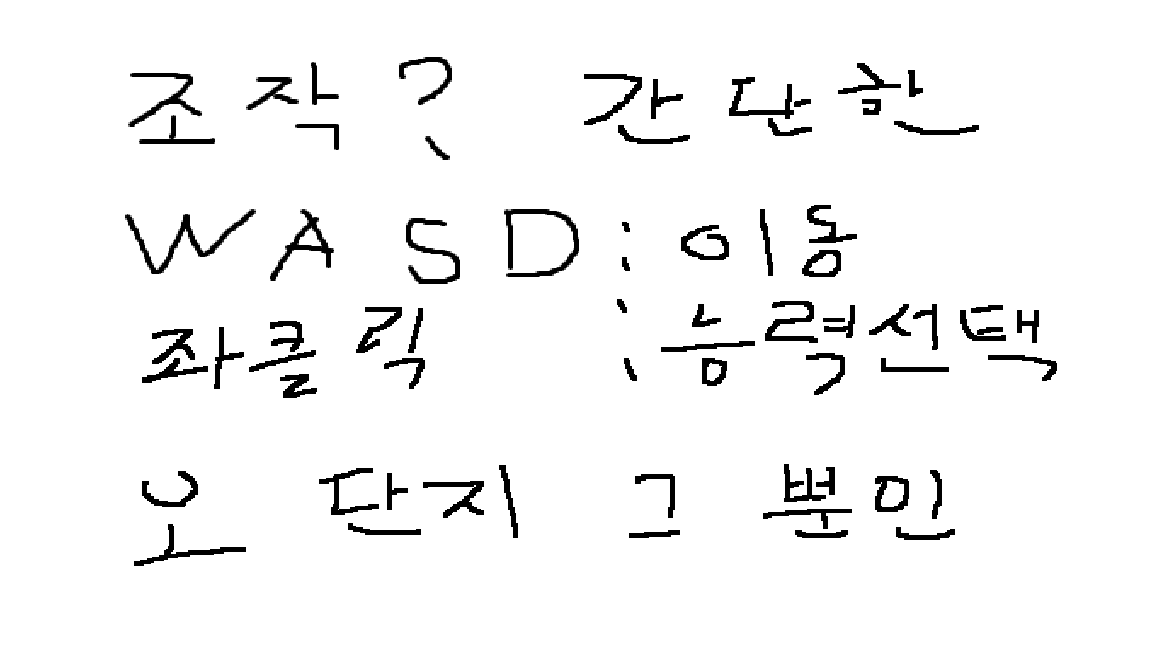 조작? 간단한
WASD : 이동
좌클릭 : 능력선택
오 단지 그 뿐인